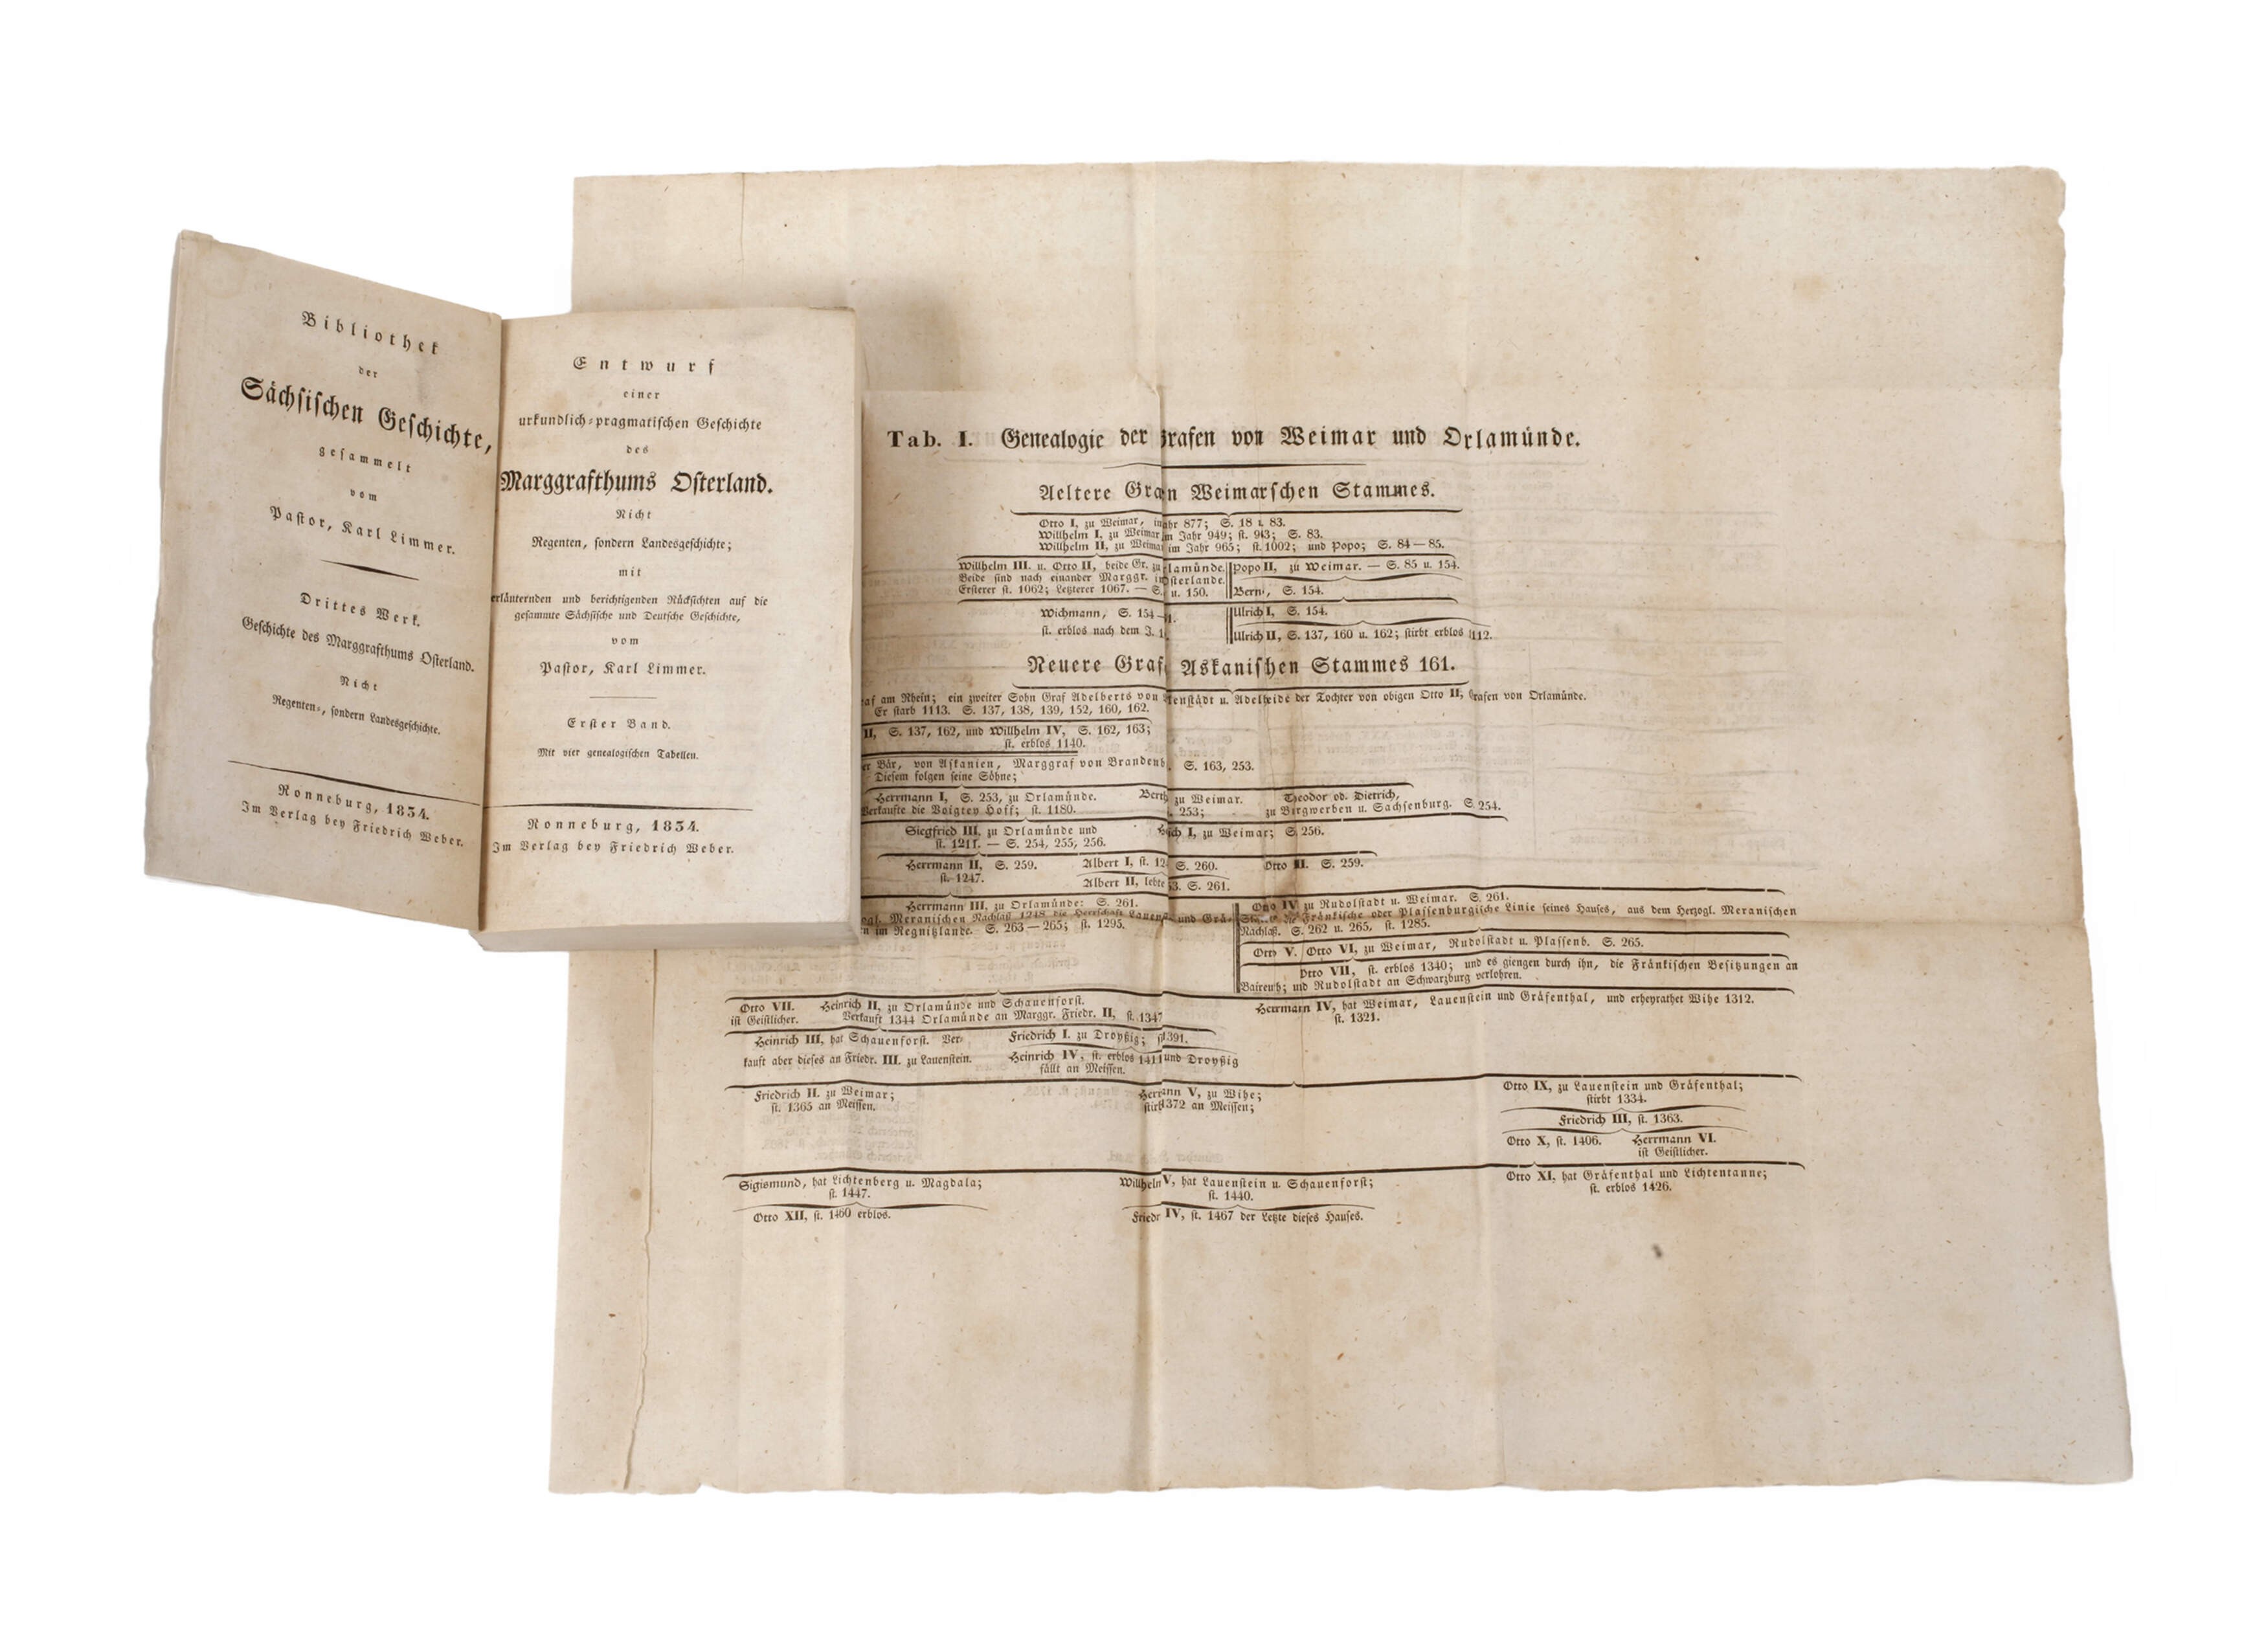 Bibliothek
der
Sächsischen Geschichte,
gesammelt
vom
Pastor, Karl Limmer.
Drittes Werk.
Geschichte des Marggrafthums Osterland.
Nicht
Regenten-, sondern Landesgeschichte.
Ronneburg, 1834.
Im Verlag bey Friedrich Weber.
Entwurf
einer
urkundlich-pragmatischen Geschichte
des
Marggrafthums Osterland.
Nicht
Regenten, sondern Landesgeschichte;
mit
erläuternden und berichtigenden Rücksichten auf die
gesammte Sächsische und Deutsche Geschichte,
vom
Pastor, Karl Limmer.
Erster Band.
Mit vier genealogischen Tabellen.
Ronneburg, 1834.
Im Verlag bey Friedrich Weber.
Tab. I. Genealogie der Grafen von Weimar und Orlamünde.
Aeltere Weimarschen Stammes.
Otto I, zu Weimar, 877; S. 18 83.
Willhelm I, zu Weimar im Jahr 949; st. 963; S. 83.
Willhelm II, zu Weimar im Jahr 965; st. 1002; und Popo; S. 84—85.
Willhelm III. u. Otto II, beide Gr. zu Orlamünde. Popo II, zu Weimar. — S. 85 u. 154.
Beide sind nach einander Marggr. Osterlande.
Ersterer st. 1062; Letzterer 1067. — S. u. 150. S. 154.
Wichmann, S. 154 Ulrich I, S. 154.
st. erblos nach dem J. Ulrich II, S. 137, 160 u. 162; stirbt erblos 1112.
Neuere Askanischen Stammes 161.
am Rhein; ein zweiter Sohn Graf Adelberts von u. Adelheids der Tochter von obigen Otto II, Grafen von Orlamünde.
Er starb 1113. S. 137, 138, 139, 152, 160, 162.
II, S. 137, 162, und Willhelm IV, S. 162, 163;
st. erblos 1140.
Bär, von Askanien, Marggraf von Brandenb. S. 163, 253.
Diesem folgen seine Söhne;
Herrmann I, S. 253, zu Orlamünde. zu Weimar. Theodor od. Dietrich,
Verkaufte die Voigtey Hoff; st. 1180. 253; zu Burgwerben u. Sachsenburg. S. 254.
Siegfried III, zu Orlamünde und I, zu Weimar; S. 256.
st. 1211. — S. 254, 255, 256.
Herrmann II, S. 259. Albert I, st. S. 260. Otto III. S. 259.
st. 1247. Albert II, lebte S. 261.
Herrmann III, zu Orlamünde: S. 261. Otto IV zu Rudolstadt u. Weimar. S. 261.
Meranischen Nachlaß 1248 die Herrschaft und Fränkische oder Plassenburgische Linie seines Hauses, aus dem Herzogl. Meranischen
im Regnitzlande. S. 263—265; st. 1295. Nachlaß. S. 262 u. 265, st. 1285.
Otto V. Otto VI, zu Weimar, Rudolstadt u. Plassenb. S. 265.
Otto VII, st. erblos 1340; und es giengen durch ihn, die Fränkischen Besitzungen an
Baireuth; und Rudolstadt an Schwarzburg verlohren.
Otto VII. Heinrich II, zu Orlamünde und Schauenforst. Herrmann IV, hat Weimar, Lauenstein und Gräfenthal, und erheyrathet Wihe 1312.
ist Geistlicher. Verkauft 1344 Orlamünde an Marggr. Friedr. II, st. 1347 st. 1321.
Heinrich III, hat Schauenforst. Ver- Friedrich I. zu Droyßig; 1391.
kauft aber dieses an Friedr. III. zu Lauenstein. Heinrich IV, st. erblos 1411 und Droyßig
fällt an Meissen.
Friedrich II. zu Weimar; Herrmann V, zu Wihe; Otto IX, zu Lauenstein und Gräfenthal;
st. 1365 an Meissen. stirbt 1372 an Meissen; stirbt 1334.
Friedrich III, st. 1363.
Otto X, st. 1406. Herrmann VI.
ist Geistlicher.
Sigismund, hat Lichtenberg u. Magdala; Willhelm V, hat Lauenstein u. Schauenforst; Otto XI, hat Gräfenthal und Lichtentanne;
st. 1447. st. 1440. st. erblos 1426.
Otto XII, st. 1460 erblos. Friedr IV, st. 1467 der Letzte dieses Hauses.